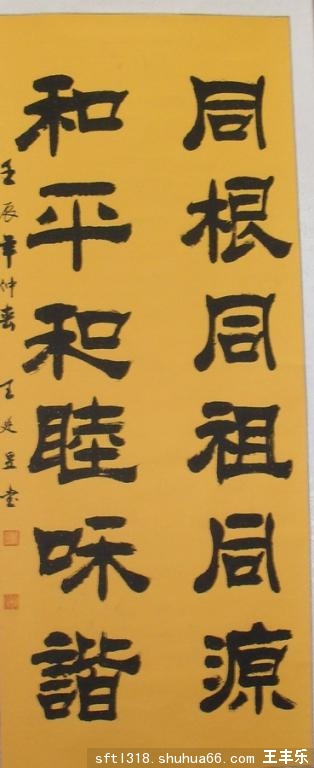 同根同祖同源
和平和睦咊諧
壬辰年仲春 王 书
sftl318.shuhua66.com 王丰乐